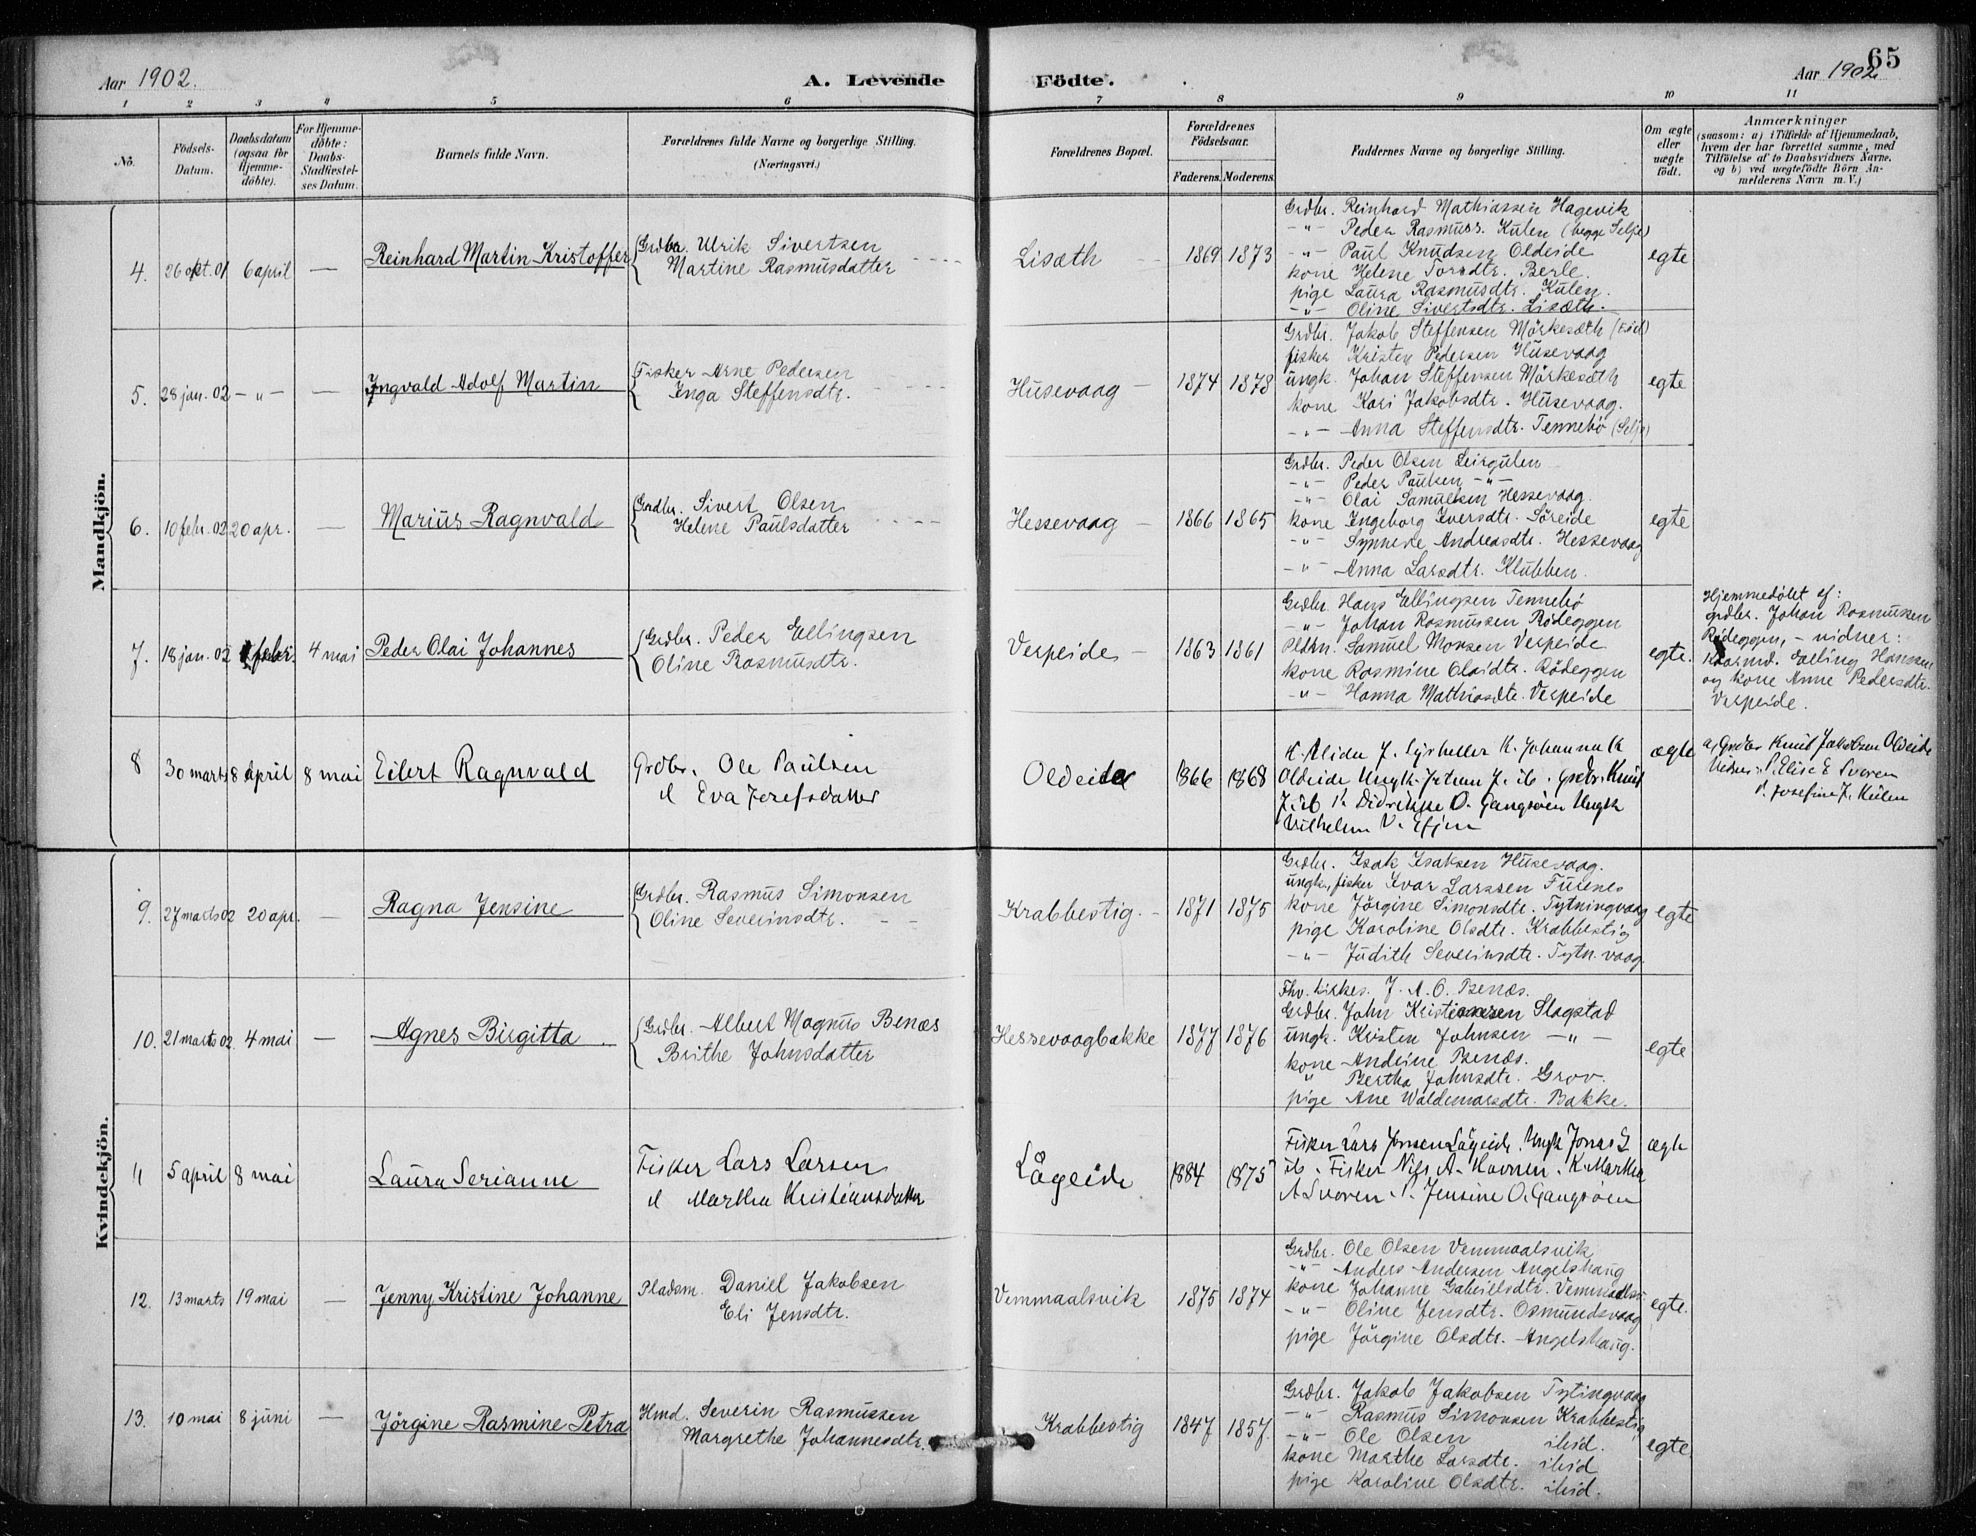 Aar 1902.
A. Levende
Födte.
Aar 1902
65
1 2 3 4 5 6 7 8 9 10 11
No.
Födsels-Datum.
Daabsdatum (ogsaa for Hjemme-döbte).
For Hjemme-döbte: Daabs-Stadfæstel-ses Datum.
Barnets fulde Navn.
Forældrenes fulde Navne og borgerlige Stilling. (Næringsvei.)
Forældrenes Bopæl.
Forældrenes Födselsaar.
Faderens. Moderens.
Faddernes Navne og borgerlige Stilling.
Om ægte eller uægte födt.
Anmærkninger
(saasom: a) i Tilfælde af Hjemmedaab, hvem der har forrettet samme, med Tilföielse af to Daabsvidners Navne, og b) ved uægtefödte Börn An-melderens Navn m. V.)
Mandkjön.
4. 26 okt. 01 6 april — Reinhard Martin Kristoffer
Grdbr. Ulrik Sivertsen
Martine Rasmusdatter
Lisæth 1869 1873
Grdbr. Reinhard Mathiassen Hagevik
-"- Peder Rasmuss. Kulen (begge Selje)
-"- Paul Knudsen Oldeide
kone Helene Torsdtr. Berle.
pige Laura Rasmusdtr. Kulen.
-"- Oline Sivertsdtr. Lisæth.
egte
5. 28 jan. 02 -"- — Ingvald Adolf Martin
Fisker Arne Pedersen
Inga Steffensdtr.
Husevaag 1874 1878
Grdbr. Jakob Steffensen Mörkesæth (Eid)
fisker Kristen Pedersen Husevaag
ungk. Johan Steffensen Mörkesæth
kone Kari Jakobsdtr. Husevaag.
-"- Anna Steffensdtr. Tennebö (Selje)
egte
6. 10 febr. 02 20 apr. — Marius Ragnvald
Grdbr. Sivert Olsen
Helene Paulsdatter
Hessevaag 1866 1865
Grdbr. Peder Olsen Leirgulen
-"- Peder Paulsen -"-
-"- Olai Samuelsen Hessevaag.
kone Ingeborg Iversdtr. Söreide
-"- Synneve Andreasdtr. Hessevaag
-"- Anna Larsdtr. Klubben.
egte
7. 18 jan. 02 febr. 4 mai Peder Olai Johannes
Grdbr. Peder Ellingsen
Oline Rasmusdtr.
Verpeide 1863 1861
Grdbr. Hans Ellingsen Tennebö
-"- Johan Rasmussen Rödeggen
Pldsn. Samuel Monsen Verpeide
kone Rasmine Olaidtr. Rödeggen
-"- Hanna Mathiasdtr. Verpeide
egte.
Hjemmedöbt af:
grdbr. Johan Rasmussen
Rödeggen, - vidner:
Elling Hansen
og kone Anne Pedersdtr.
Verpeide.
8 30 marts 8 april 8 mai Eilert Ragnvald
Grdbr. Ole Paulsen
Eva Josefsdatter
Oldeide 1866 1868
K. Johanna K
Oldeide Ungk. Grdbr. Knut
O. Gangsöen Ungk
Vilhelm V.
ægte
a, Grdbr Knut Jakobsen Oldeide
P. Elise E Svoren
P. Josefine J. Kulen
Kvindekjön.
9. 27 marts 02 20 apr. — Ragna Jensine
Grdbr. Rasmus Simonsen
Oline Severinsdtr.
Krabbestig. 1871 1875
Grdbr. Isak Isaksen Husevaag.
ungk., fisker Ivar Larssen Furenes
kone Jörgine Simonsdtr. Tytningvaag
pige Karoline Olsdtr. Krabbestig
-"- Judith Severinsdtr. Tytn. vaag.
egte
10. 21 marts 02. 4 mai — Agnes Birgitta
Grdbr. Albert Magnus Benæs
Brithe Johnsdatter
Hessevaagbakke 1877 1876
Fhv. kirkes. J. A. O. Benæs.
Grdbr. John Kristiansen Slagstad
ungk. Kristen Johnsen -"-
kone Andrine Benæs.
" Bertha Johnsdtr. Grov.
pige Ane Waldemarsdtr. Bakke.
egte
11 5 april 8 mai Laura Serianne
Fisker Lars Larsen
Martha Kristiansdatter
Lågeide 1884 1875
Fisker Lars Jensen Lågeide. Ungk Jonas G
ib. Fisker Nils A. Havnen. K. Martha
A Svoren. P. Jensine O. Gangsöen
ægte
12. 13 marts 19 mai — Jenny Kristine Johanne
Pladsm. Daniel Jakobsen
Eli Jensdtr.
Vemmaalsvik 1875 1874
Grdbr. Ole Olsen Vemmaalsvik
-"- Anders Andersen Angelshaug
kone Johanne Gabrielsdtr. Vemmaalsv.
-"- Oline Jensdtr. Osmundsvaag
pige Jörgine Olsdtr. Angelshaug.
egte.
13. 10 mai 8 juni — Jörgine Rasmine Petra
Hmd. Severin Rasmussen
Margrethe Johannesdtr.
Krabbestig 1847 1857.
Grdbr. Jakob Jakobsen Tytingvaag
-"- Rasmus Simonsen Krabbestig
-"- Ole Olsen ibid.
kone Marthe Larsdtr. ibid
pige Karoline Olsdtr. ibid.
egte